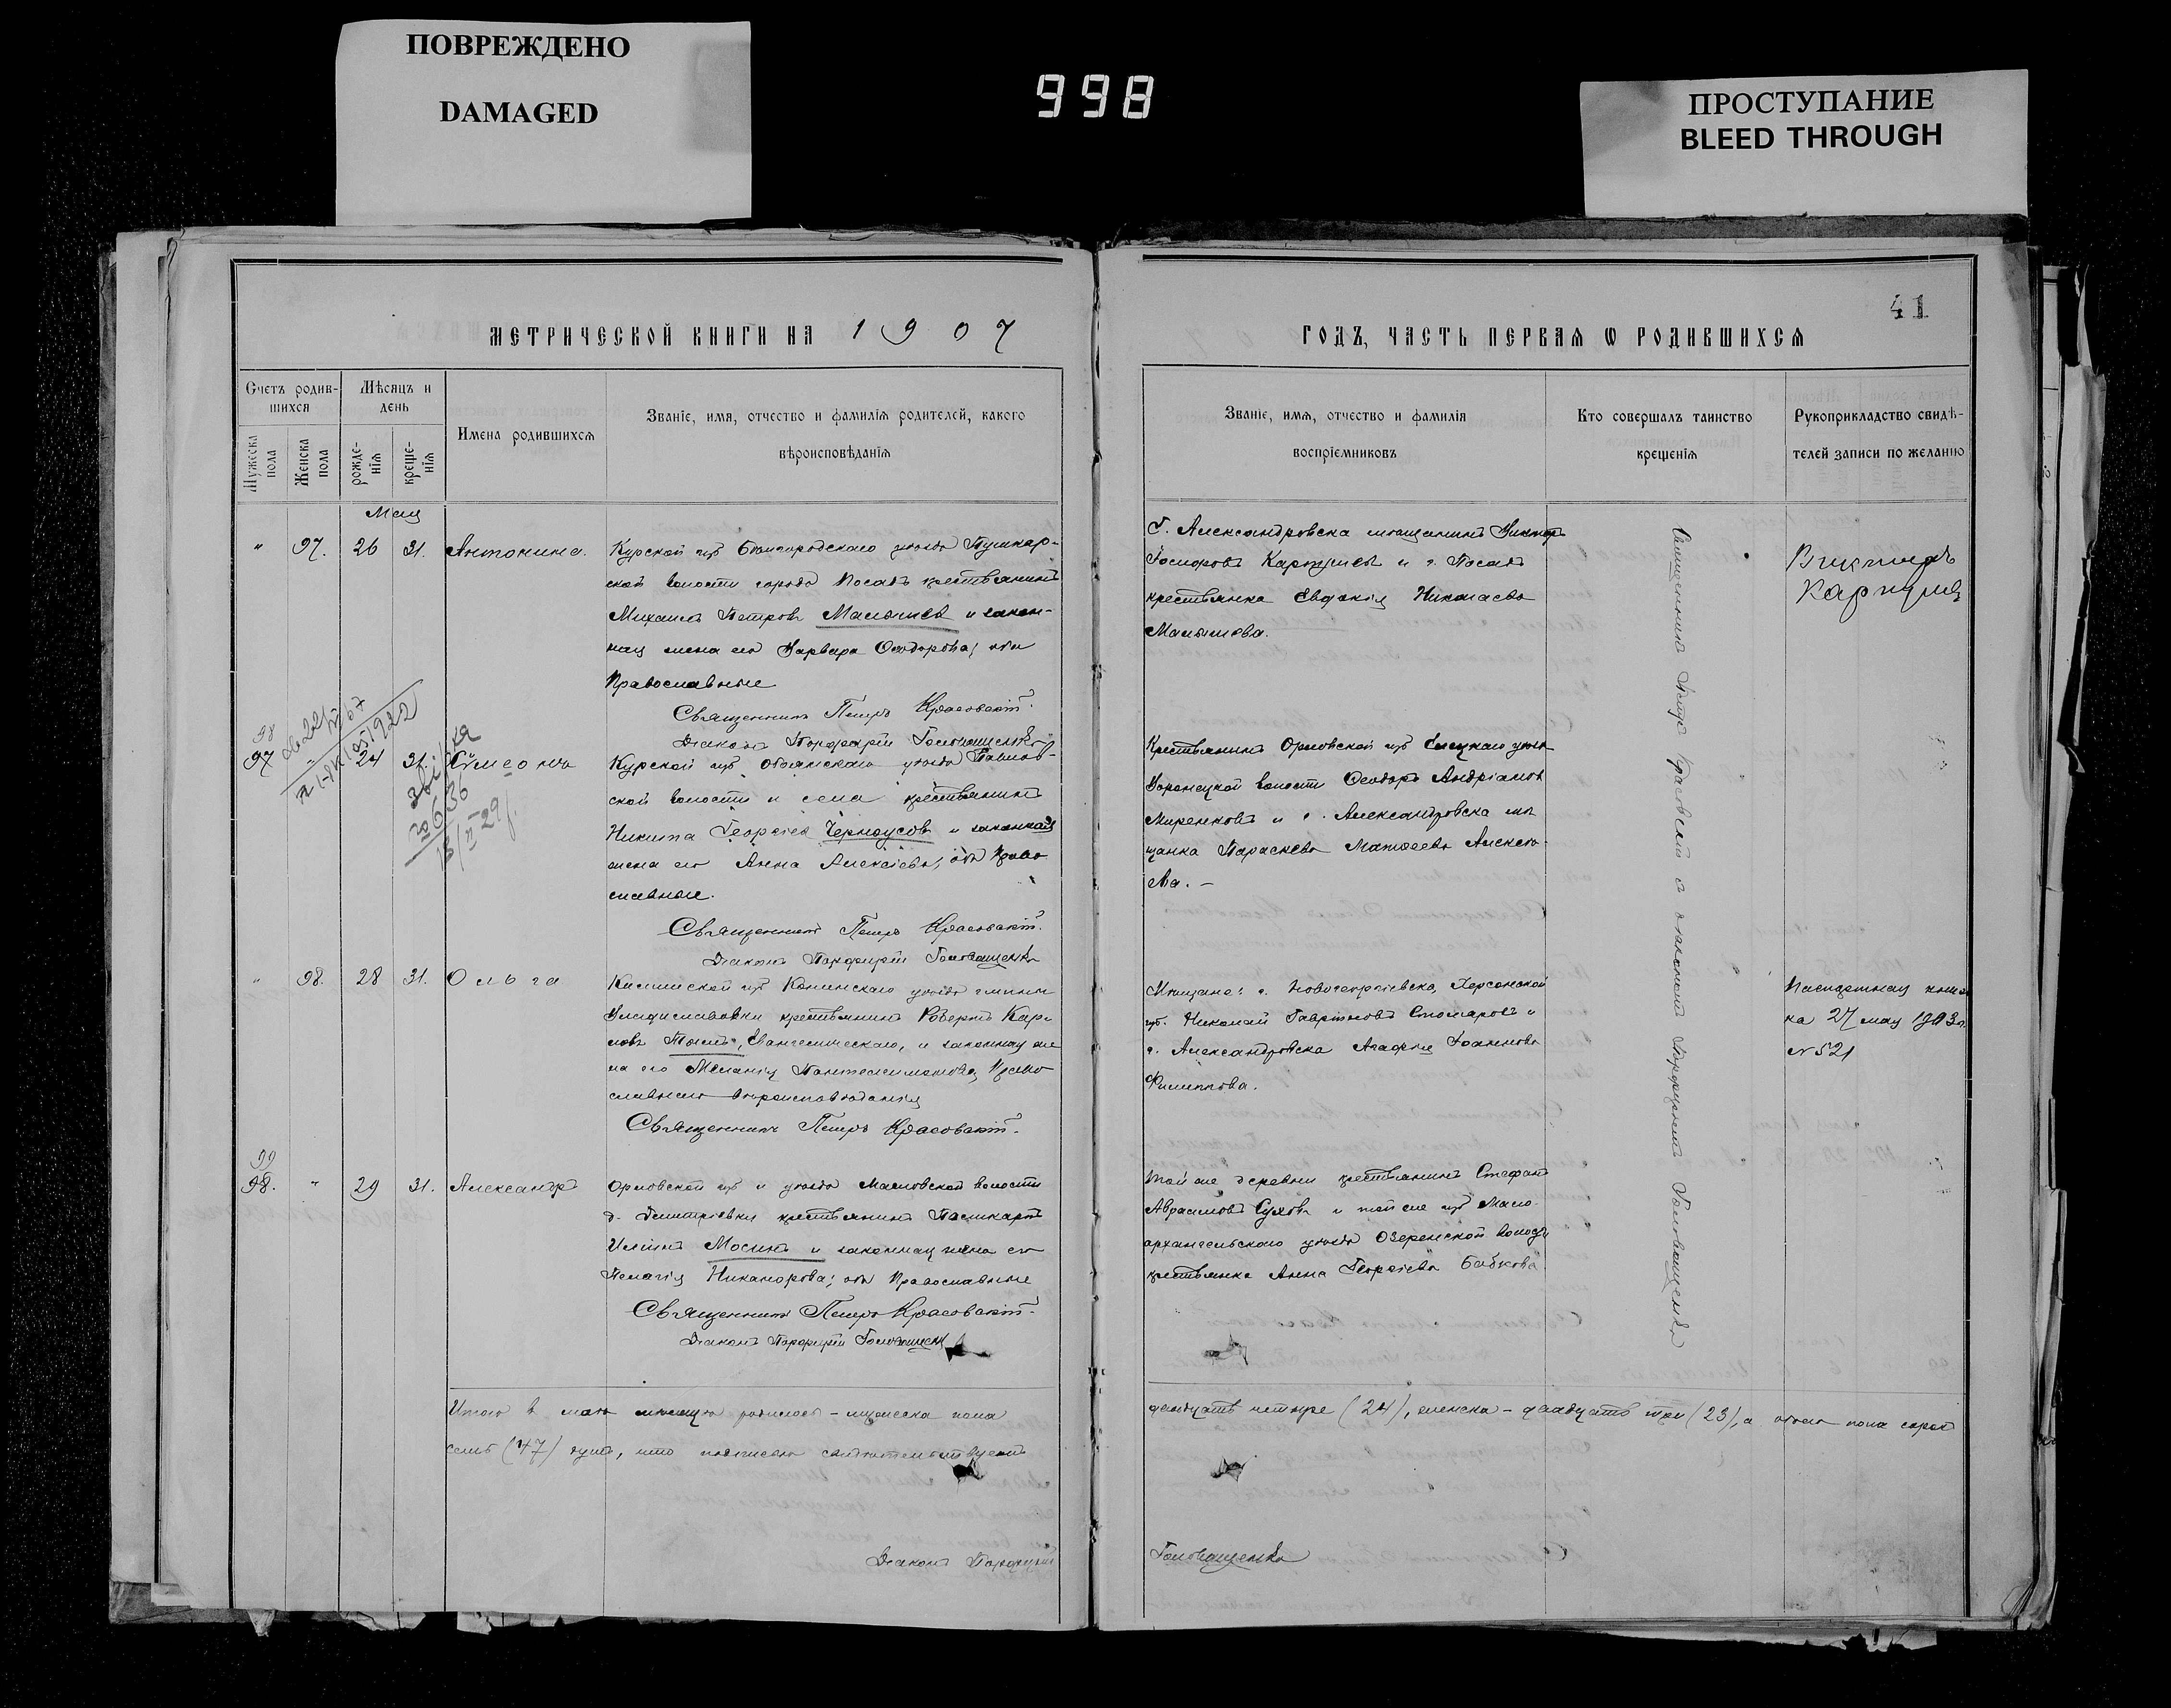 ПОВРЕЖДЕНО
DAMAGED
998
ПРОСТУПАНИЕ
BLEED THROUGH
41
МЕТРИЧЕСКОЙ КНИГИ НА 1907
ГОДЪ, ЧАСТЬ ПЕРВАЯ Ѡ РОДИВШИХСЯ
Счетъ родив-
шихся
Мужеска
пола
Женска
пола
Мѣсяцъ и
день
рожде-
нія
креще-
нія
Имена родившихся
Званіе, имя, отчество и фамилія родителей, какого
вѣроисповѣданія
Званіе, имя, отчество и фамилія
воспріемниковъ
Кто совершалъ таинство
крещенія
Рукоприкладство свидѣ-
телей записи по желанію
Мая
" 97. 26 31. Антонина.
Курской губ Бѣлгородскаго уѣзда Пушкар-
ской волости города Посадъ крестьянинъ
Михаилъ Петровъ Малышевъ и закон-
ная жена его Варвара Ѳеодорова; оба
Православные
Священникъ Петръ Красовскій.
Діаконъ Порфирій Головащенко
Г. Александровска мѣщанинъ Викторъ
Карпушев и г. Посадъ
крестьянка Евдокія Николаева
Малышева.
Викторъ
Карпушев
98
97 " 24 31. Сѵмеонъ
Курской губ. Обоянскаго уѣзда Павлов-
ской волости и села крестьянинъ
Никита Георгіевъ Черноусовъ и законная
жена его Анна Алексіева, оба Право
славные.
Священникъ Петръ Красовскій.
Діаконъ Порфирій Головащенко
Крестьянинъ Орловской губ Елецкаго уѣзда
Воронецкой волости Ѳеодоръ Андріановъ
Миренковъ и г. Александровска мѣ
щанка Параскева Матѳеева Алексѣ-
ева. –
Священникъ Петръ Красовскій с діакономъ Порфиріемъ Головащенко
" 98. 28 31. Ольга
Калишской губ Конинскаго уѣзда гмины
Владиславовки крестьянинъ Робертъ Кар-
ловъ Евангелическаго, и законная же
на его Меланія Пантелеимонова, Право
славнаго вѣроисповѣданія
Священникъ Петръ Красовскій.
Мѣщане: г. Новогеоргіевска, Херсонской
губ. Николай Гавріиловъ Столяровъ и
г. Александровска Агафія Іоаннова
Филиппова.
Паспортная книж
ка 27 мая 1903г.
№ 521
99
98. " 29 31. Александръ
Орловской губ и уѣзда Масловской волости
д. Димитріевки крестьянинъ
Иліинъ Мосинъ и законная жена его
Пелагія Никанорова; оба Православные
Священникъ Петръ Красовскій.
Діаконъ Порфирій Головащенко
Той же деревни крестьянинъ Стефанъ
Авраамовъ Суховъ и той же губ Мало
архангельскаго уѣзда Озеренской волости
крестьянка Анна Георгіева Бабкова.
Итого в маѣ мѣсяцѣ родилось – мужеска пола
двадцать четыре (24), женска – двадцать три (23), а обоего пола сорокъ
семь (47) душъ, что подписью свидѣтельствуемъ
Діаконъ Порфирій
Головащенко